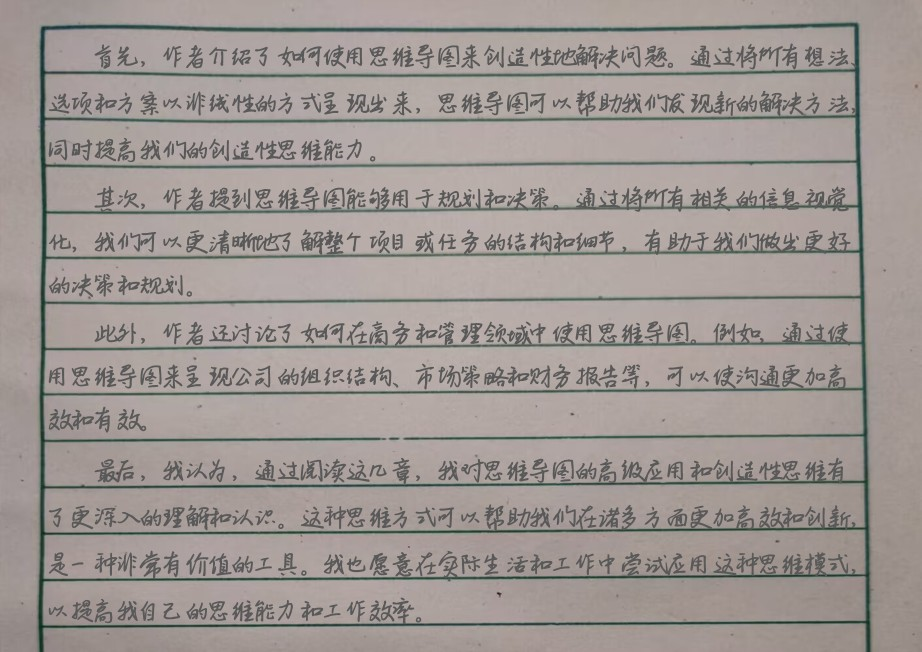 首先，作者介绍了如何使用思维导图来创造性地解决问题。通过将所有想法、
选项和方案以非线性的方式呈现出来，思维导图可以帮助我们发现新的解决方法，
同时提高我们的创造性思维能力。
其次，作者提到思维导图能够用于规划和决策。通过将所有相关的信息视觉
化，我们可以更清晰地了解整个项目或任务的结构和细节，有助于我们做出更好
的决策和规划。
此外，作者还讨论了如何在商务和管理领域中使用思维导图。例如，通过使
用思维导图来呈现公司的组织结构、市场策略和财务报告等，可以使沟通更加高
效和有效。
最后，我认为，通过阅读这几章，我对思维导图的高级应用和创造性思维有
了更深入的理解和认识。这种思维方式可以帮助我们在诸多方面更加高效和创新，
是一种非常有价值的工具。我也愿意在实际生活和工作中尝试应用这种思维模式，
以提高我自己的思维能力和工作效率。